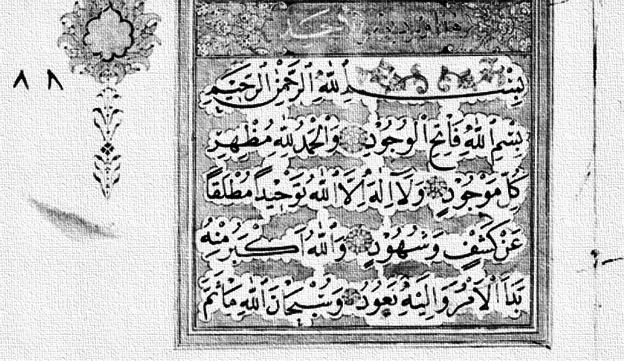 ٨٨
بِسْمِ اللهِ الرَّحْمٰنِ الرَّحِيْمِ
بِسْمِ اللهِ فَاتِحِ الْوُجُوْدِ وَالْحَمْدُ لِلّٰهِ مُظْهِرِ
كُلِّ مَوْجُوْدٍ وَلَآ اِلٰهَ اِلَّا اللهُ تَوْحِيْدًا مُطْلَقًا
عَنْ كَشْفٍ وَشُهُوْدٍ وَاللهُ اَكْبَرُ مِنْهُ
بَدَأَ الْاَمْرُ وَاِلَيْهِ يَعُوْدُ وَسُبْحَانَ اللهِ مَا ثَمَّ